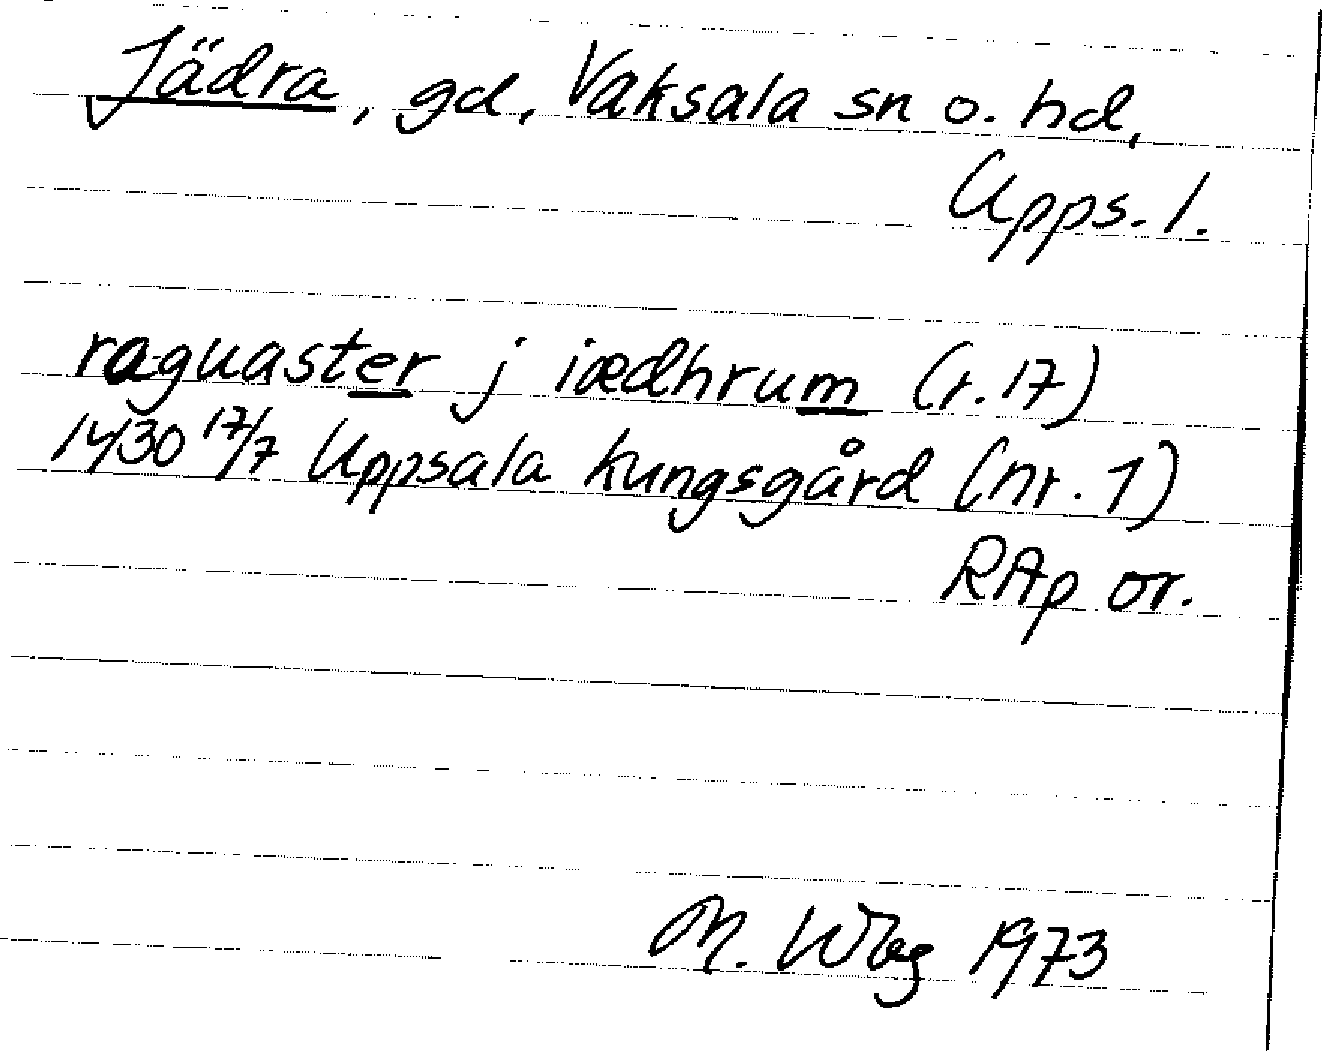 Jädra, gd, Vaksala sn o. hd,
Upps. l.
raguaster j iædhrum (r. 17)
1430 17/7 Uppsala kungsgård (nr. 1)
RAp or.
M. Wbg 1973